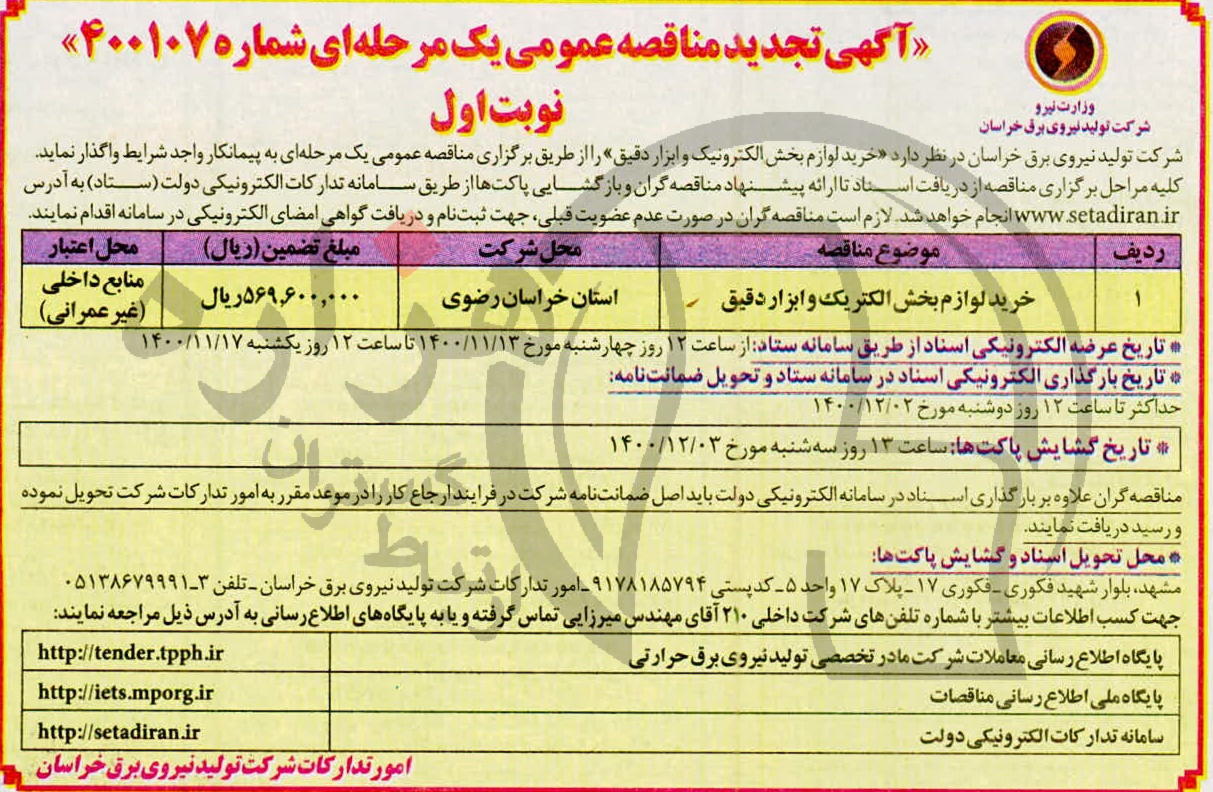 «آگهی تجدید مناقصه عمومی یک مرحله‌ای شماره ۴۰۰۱۰۷»
نوبت اول
وزارت نیرو
شرکت تولید نیروی برق خراسان
شرکت تولید نیروی برق خراسان در نظر دارد «خرید لوازم بخش الکترونیک و ابزار دقیق» را از طریق برگزاری مناقصه عمومی یک مرحله‌ای به پیمانکار واجد شرایط واگذار نماید.
کلیه مراحل برگزاری مناقصه از دریافت اسناد تا ارائه پیشنهاد مناقصه‌گران و بازگشایی پاکت‌ها از طریق سامانه تدارکات الکترونیکی دولت (ستاد) به آدرس
www.setadiran.ir انجام خواهد شد. لازم است مناقصه‌گران در صورت عدم عضویت قبلی، جهت ثبت‌نام و دریافت گواهی امضای الکترونیکی در سامانه اقدام نمایند.
ردیف موضوع مناقصه محل شرکت مبلغ تضمین (ریال) محل اعتبار
۱ خرید لوازم بخش الکتریک و ابزار دقیق استان خراسان رضوی ۵۶۹,۶۰۰,۰۰۰ ریال منابع داخلی
(غیر عمرانی)
* تاریخ عرضه الکترونیکی اسناد از طریق سامانه ستاد: از ساعت ۱۲ روز چهارشنبه مورخ ۱۴۰۰/۱۱/۱۳ تا ساعت ۱۲ روز یکشنبه ۱۴۰۰/۱۱/۱۷
* تاریخ بارگذاری الکترونیکی اسناد در سامانه ستاد و تحویل ضمانت‌نامه:
حداکثر تا ساعت ۱۲ روز دوشنبه مورخ ۱۴۰۰/۱۲/۰۲
* تاریخ گشایش پاکت‌ها: ساعت ۱۳ روز سه‌شنبه مورخ ۱۴۰۰/۱۲/۰۳
مناقصه‌گران علاوه بر بارگذاری اسناد در سامانه الکترونیکی دولت باید اصل ضمانت‌نامه شرکت در فرایند ارجاع کار را در موعد مقرر به امور تدارکات شرکت تحویل نموده
و رسید دریافت نمایند.
* محل تحویل اسناد و گشایش پاکت‌ها:
مشهد، بلوار شهید فکوری ـ فکوری ۱۷ ـ پلاک ۱۷ واحد ۵ ـ کدپستی ۹۱۷۸۱۸۵۷۹۴ ـ امور تدارکات شرکت تولید نیروی برق خراسان ـ تلفن ۳ـ۰۵۱۳۸۶۷۹۹۹۱
جهت کسب اطلاعات بیشتر با شماره تلفن‌های شرکت داخلی ۲۱۰ آقای مهندس میرزایی تماس گرفته و یا به پایگاه‌های اطلاع رسانی به آدرس ذیل مراجعه نمایند:
پایگاه اطلاع رسانی معاملات شرکت مادر تخصصی تولید نیروی برق حرارتی http://tender.tpph.ir
پایگاه ملی اطلاع رسانی مناقصات http://iets.mporg.ir
سامانه تدارکات الکترونیکی دولت http://setadiran.ir
امور تدارکات شرکت تولید نیروی برق خراسان
هزاره
گستران
ارتباط